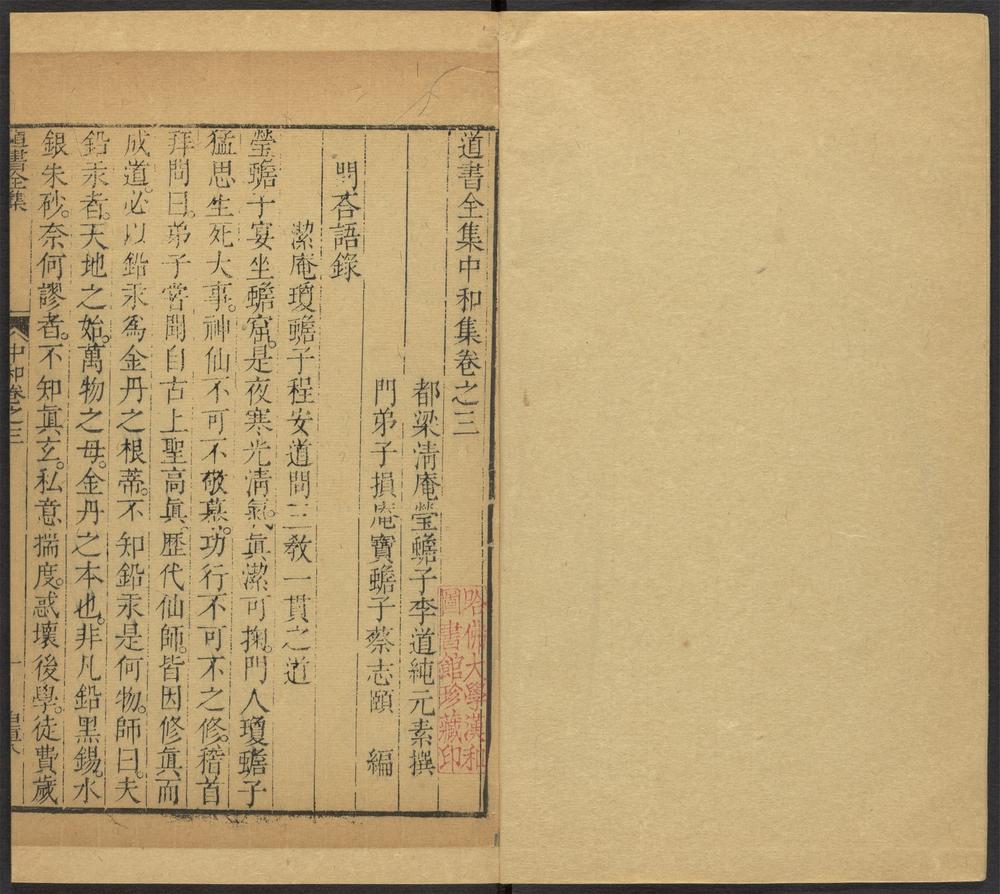 道書全集中和集卷之三
都梁清庵瑩蟾子李道純元素撰
門弟子損庵寶蟾子蔡志頤 編
問荅語錄
潔庵瓊蟾子程安道問三敎一貫之道
瑩蟾子宴坐蟾窟。是夜寒光淸氣。眞潔可掬。門人瓊蟾子
猛思生死大事。神仙不可不敬慕。功行不可不之修。稽首
拜問曰。弟子嘗聞自古上聖高眞。歷代仙師。皆因修眞而
成道。必以鉛汞爲金丹之根蒂。不知鉛汞是何物。師曰。夫
鉛汞者。天地之始。萬物之母。金丹之本也。非凡鉛黑錫。水
銀朱砂。奈何謬者。不知眞玄。私意揣度。惑壞後學。徒費歲
道書全集 中和卷之三 一
哈佛大學漢和
圖書館珍藏印